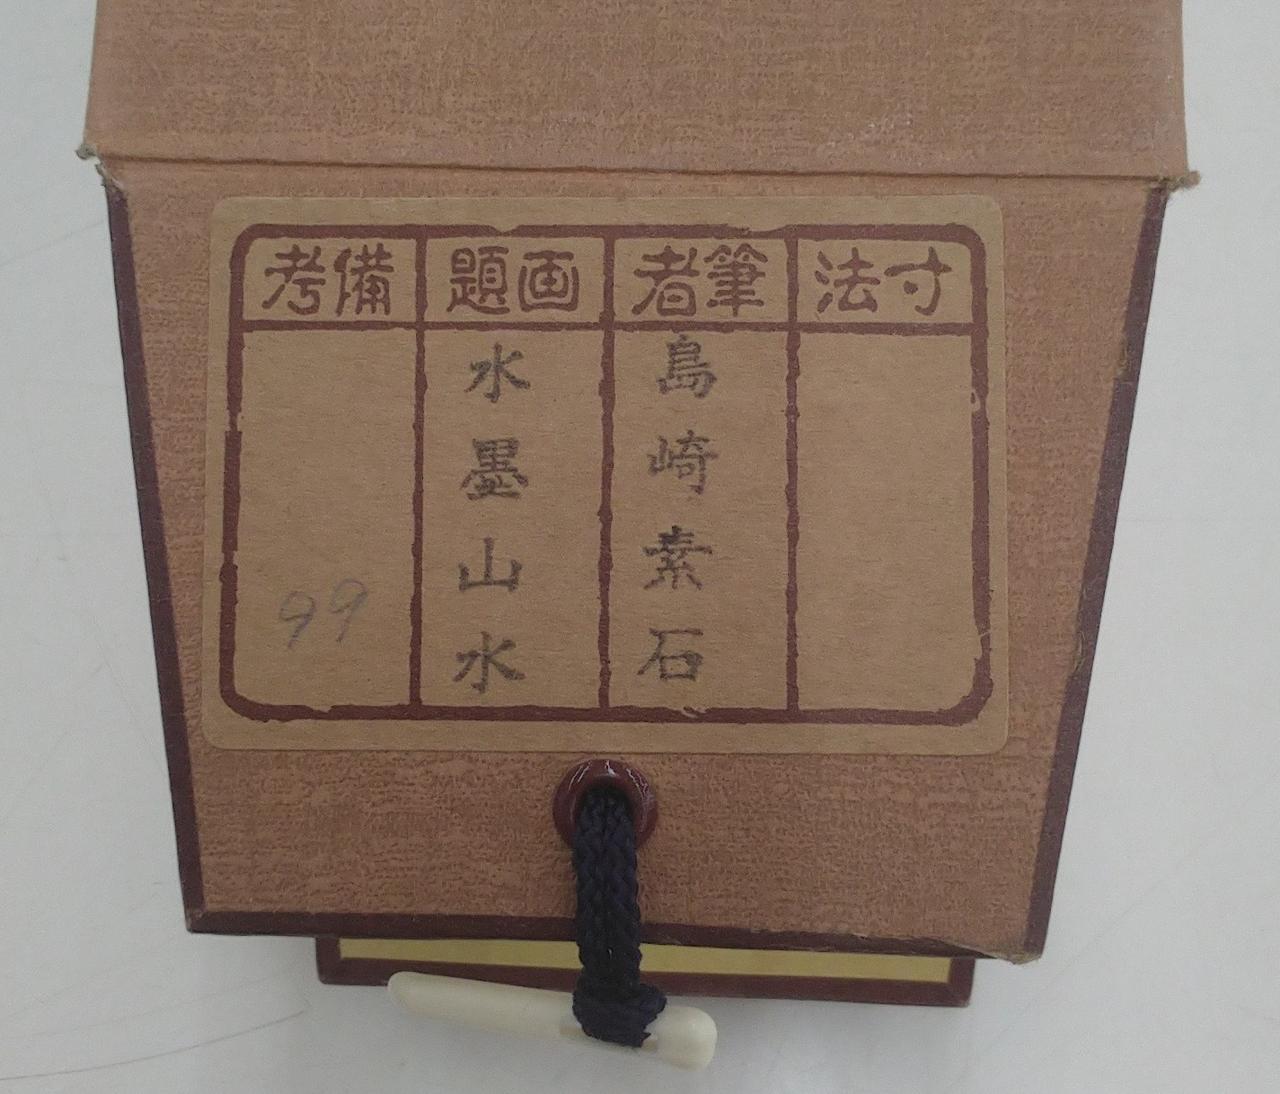 寸法
筆者
島崎素石
画題
水墨山水
備考
99